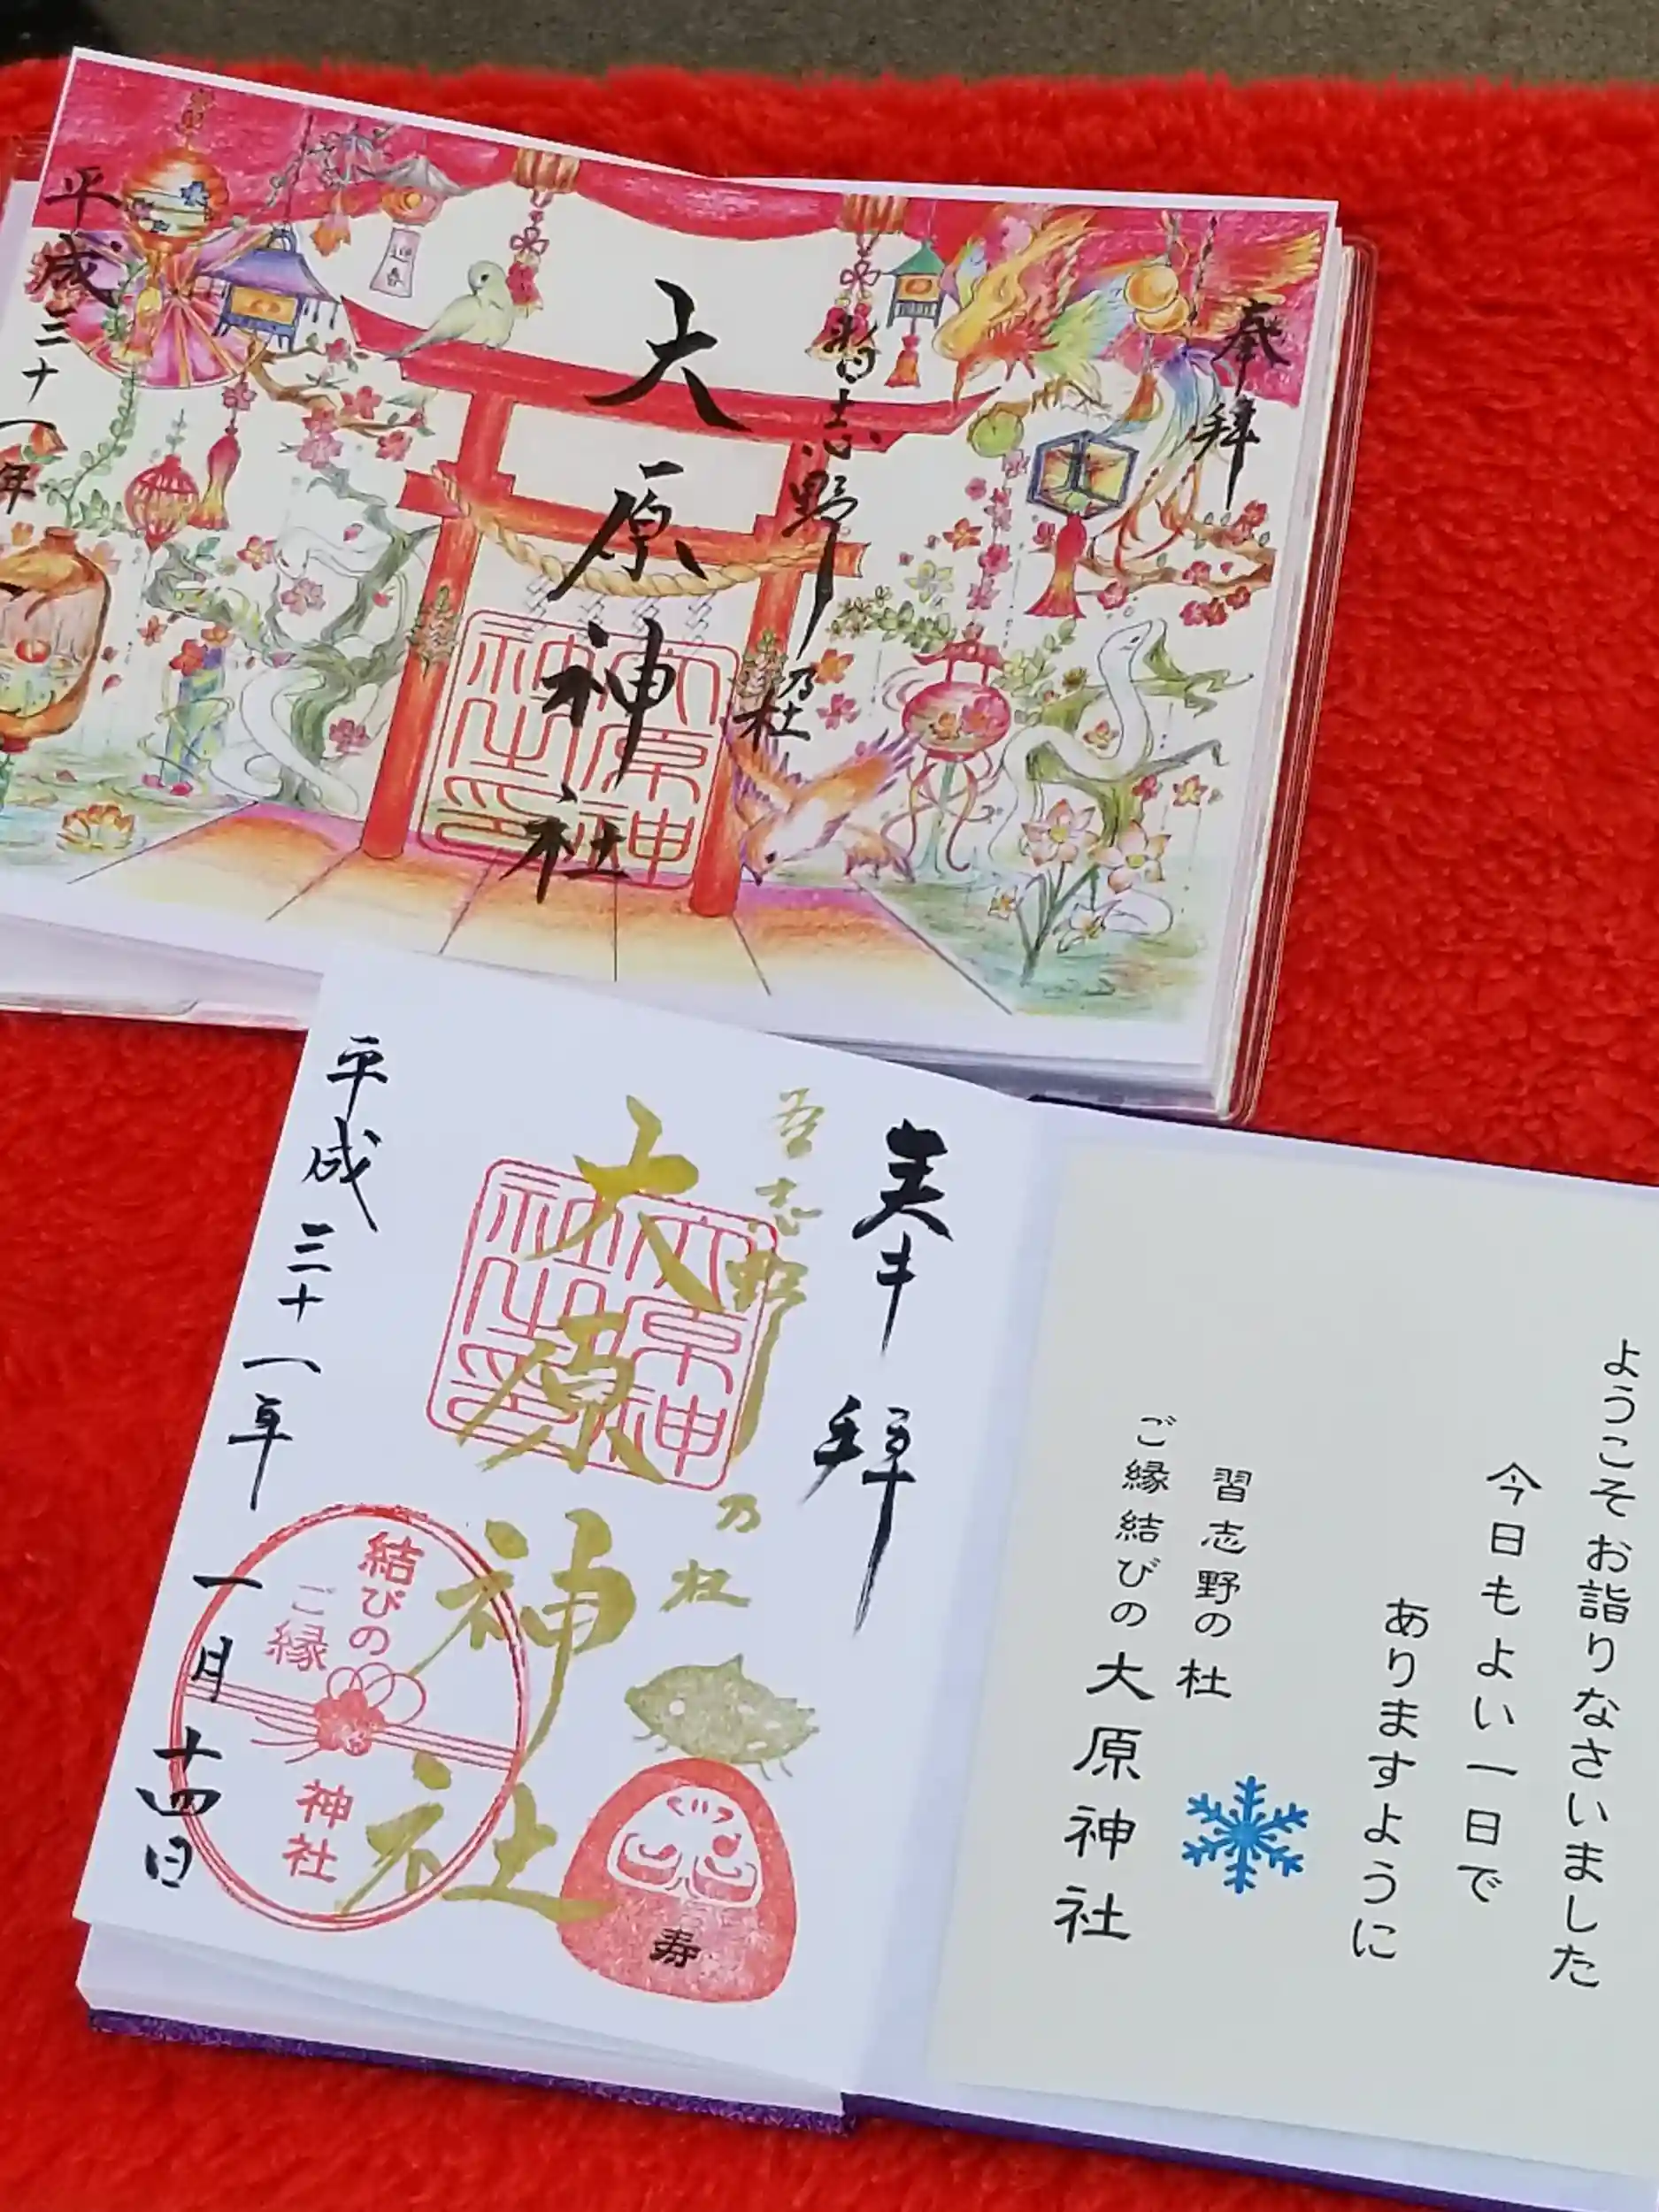 奉拝
習志野乃杜
大原神社
大原神社之印
迎春
平成三十一年
ようこそお詣りなさいました
今日もよい一日で
ありますように
習志野の杜
ご縁結びの大原神社
奉拝
習志野乃杜
大原神社
大原神社之印
寿
結びの
ご縁
神社
平成三十一年一月十四日